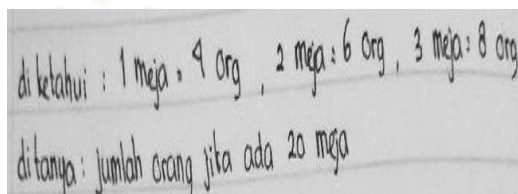 diketahui : 1 meja = 4 org , 2 meja : 6 org , 3 meja : 8 org
ditanya : jumlah orang jika ada 20 meja